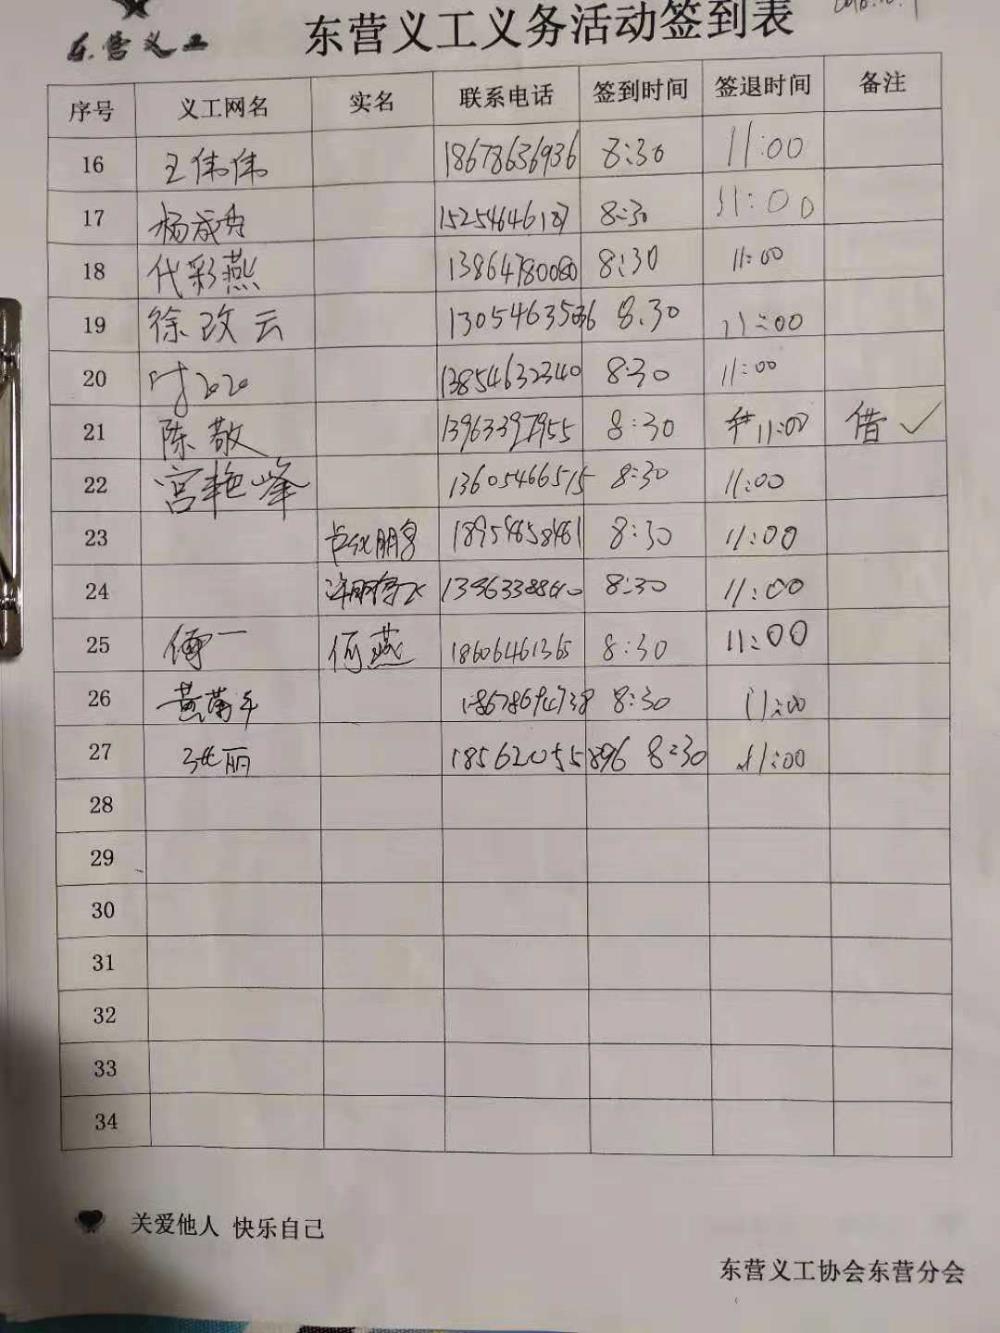 东营义工 东营义工义务活动签到表
序号 义工网名 实名 联系电话 签到时间 签退时间 备注
16 王伟伟 18678636936 8:30 11:00
17 杨成秀 8:30 11:00
18 代彩燕 13864780080 8:30 11:00
19 徐改云 13054635036 8.30 11:00
20 时2020 13854632340 8:30 11:00
21 陈敬 13963397955 8:30 11:00 借 ✓
22 宫艳峰 13605466515 8:30 11:00
23 18954658461 8:30 11:00
24 8:30 11:00
25 何燕 18606461365 8:30 11:00
26 18678694738 8:30 11:00
27 张丽 18562055896 8:30 11:00
28
29
30
31
32
33
34
关爱他人 快乐自己
东营义工协会东营分会